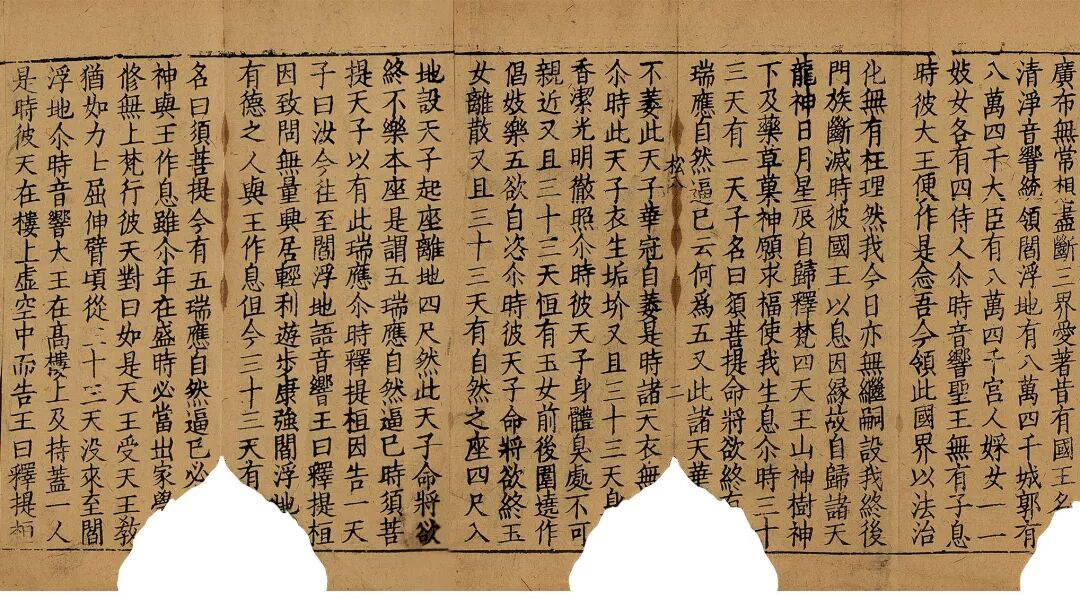 廣布無常想盡斷三界愛著昔有國王名
清淨音響統領閻浮地有八萬四千城郭有
八萬四千大臣有八萬四千宮人婇女一一
妓女各有四侍人尒時音響聖王無有子息
時彼大王便作是念吾今領此國界以法治
化無有枉理然我今日亦無繼嗣設我終後
門族斷滅時彼國王以息因緣故自歸諸天
龍神日月星辰自歸釋梵四天王山神樹神
下及藥草菓神願求福使我生息尒時三十
三天有一天子名曰須菩提命將欲終有
瑞應自然逼已云何爲五又此諸天華
松八 二
不萎此天子華冠自萎是時諸天衣無
尒時此天子衣生垢坋又且三十三天身
香潔光明徹照尒時彼天子身體臭處不可
親近又且三十三天恒有玉女前後圍遶作
倡妓樂五欲自恣尒時彼天子命將欲終玉
女離散又且三十三天有自然之座四尺入
地設天子起座離地四尺然此天子命將欲
終不樂本座是謂五瑞應自然逼已時須菩
提天子以有此瑞應尒時釋提桓因告一天
子曰汝今往至閻浮地語音響王曰釋提桓
因致問無量興居輕利遊步康強閻浮地
有德之人與王作息但今三十三天有
名曰須菩提今有五瑞應自然逼已必
神與王作息雖尒年在盛時必當出家學
修無上梵行彼天對曰如是天王受天王教
猶如力士屈伸臂頃從三十三天沒來至閻
浮地尒時音響大王在高樓上及持蓋一人
是時彼天在樓上虛空中而告王曰釋提桓